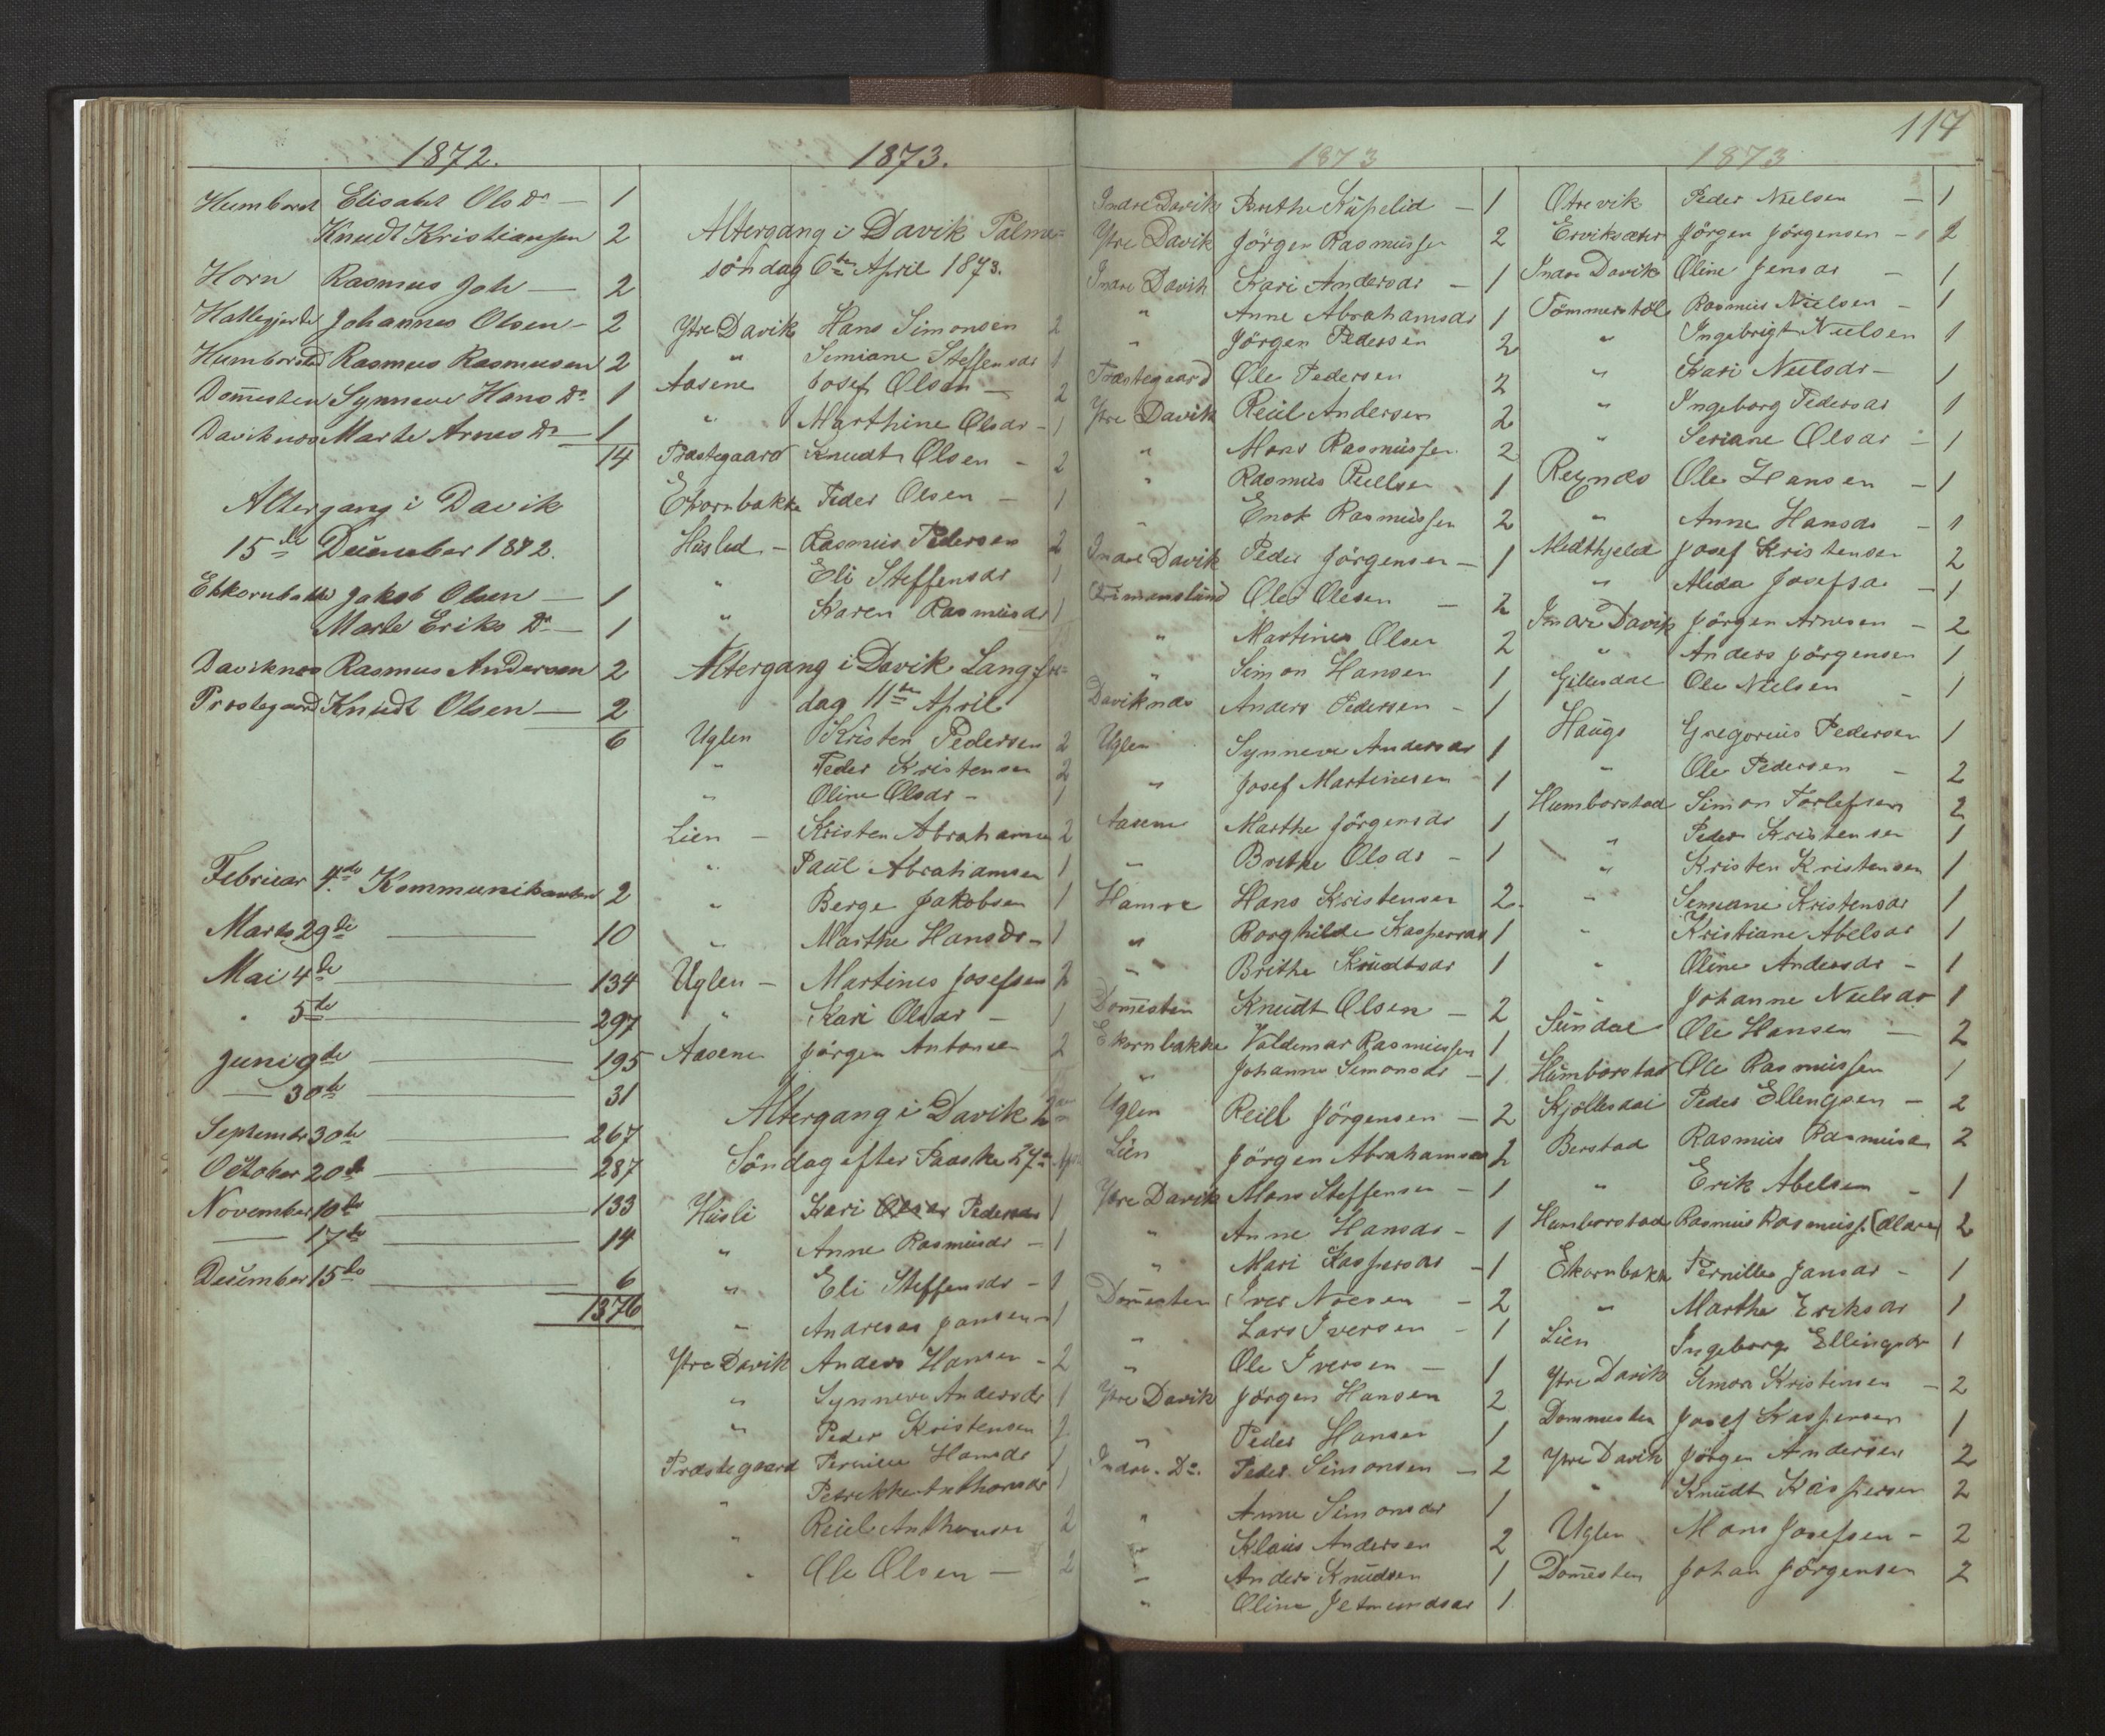 1872.
Humborst Elisabet Ols Dr — 1
Knudt Kristiansen 2
Horn Rasmus Joh — 2
Hallegjerde Johannes Olsen - 2
Humborstad Rasmus Rasmusen 2
Dom̄esten Synneve Hans Dr 1
Daviknæs Marte Arnes Dr — 1
14
Altergang i Davik
15de December 1872.
Ekkornbakke Jakob Olsen — 1
Marte Eriks Dr — 1
Daviknes Rasmus Andersen 2
Prestegaard Knudt Olsen — 2
6
Februar 4de Kommunikanter 2
Marts 29de — 10
Mai 4de — 134
" 5te — 297
Juni 9de — 195
— 30te — 31
Septembr 30te — 267
October 20de — 287
November 10de — 133
— 17de — 14
December 15de — 6
1376
1873.
Altergang i Davik Palme=
söndag 6te April 1873.
Ytre Davik Hans Simonsen 2
" Simiane Steffensdr 1
Aasene Josef Olsen — 2
" Marthine Olsdr - 1
Præstegaard Knudt Olsen - 2
Ekornbakke Peder Olsen - 1
Husled - Rasmus Pedersen 2
" Eli Steffensdr 1
" Karen Rasmusdr 1
Altergang i Davik Langfre=
dag 11te April
Uglen Kristen Pedersen 2
" Peder Kristensen 2
" Oline Olsdr - 1
Lien - Kristen Abrahamsen 2
" Paul Abrahamsen 1
" Berge Jakobsen 1
" Marthe Hansdr - 1
Uglen - Martines Josefsen 2
" Kari Olsdr - 1
Aasene Jörgen Antonsen 2
Altergang i Davik 2den
Söndag efter Paaske 27de Apr
Husli Kari Olsdr Pedersdr 1
" Anne Rasmusdr - 1
" Eli Steffensdr - 1
" Andreas Jansen - 1
Ytre Davik Anders Hansen - 2
" Synneve Andersdr 1
" Peder Kristensen 2
Præstegaard Pernille Hansdr 1
" Petrikke Anthonsdr 1
" Reiel Anthonsen 2
" Ole Olsen — 2
117
1873
Indre Davik Brithe Kupelid - 1
Ytre Davik Jörgen Rasmussen 2
Indre Davik Kari Andersdr - 1
" Anne Abrahamsdr 1
" Jörgen Pedersen 2
Præstegaard Ole Pedersen 2
Ytre Davik Reiel Andersen 2
" Mons Rasmussen 2
" Rasmus Reielsen 1
" Enok Rasmussen 2
Indre Davik Peder Jörgensen - 1
Ole Olesen - 2
" Martines Olsen 2
" Simon Hansen 1
Daviknæs Anders Pedersen - 1
Uglen Synneve Andersdr 1
" Josef Martinesen 1
Aasene Marthe Jörgensdr 1
" Brithe Olsdr - 1
Hamre Hans Kristensen 2
" Borghilde Kaspersdr 1
" Brithe Knudtsdr 1
Dom̄esten Knudt Olsen - 2
Ekornbakke Valdemar Rasmussen 1
" Johanne Simonsdr - 1
Uglen Reiel Jörgensen - 2
Lien Jörgen Abrahamsen 2
Ytre Davik Mons Steffensen - 1
" Anne Hansdr - 1
" Mari Kaspersdr - 1
Dom̄esten Iver Noesen - 2
" Lars Iversen - 1
" Ole Iversen - 1
Ytre Davik Jörgen Hansen 2
" Peder Hansen 1
Indre. Do. Peder Simonsen - 2
" Anne Simonsdr 1
" Klaus Andersen 2
" Anders Knudsen 1
" Oline Jetmundsdr 1
1873
Otrevik Peder Nielsen - 1
Erviksæter Jörgen Jörgensen - 2
Indre Davik Oline Jensdr - 1
Tömmerstöl Rasmus Nielsen - 1
" Ingebrigt Nielsen 1
" Kari Nielsdr - 1
" Ingeborg Pedersdr 1
" Seriane Olsdr - 1
Ole Hansen - 1
" Anne Hansdr - 1
Midthjeld Josef Kristensen 2
" Alida Josefsdr - 1
Indre Davik Jörgen Arnesen - 2
" Anders Jörgensen 1
Gillesdal Ole Nielsen - 1
Hauge Gregorius Pedersen 1
" Ole Pedersen - 2
Humborstad Simon Torlefsen 2
" Peder Kristensen 1
" Kristen Kristensen 1
" Semiane Kristensdr 1
" Kristiane Abelsdr 1
" Oline Andersdr - 1
" Johanne Nielsdr 1
Sundal Ole Hansen - 2
Humborstad Ole Rasmussen 1
Kjöllesdal Peder Ellengsen - 2
Berstad Rasmus Rasmusen 2
" Erik Abelsen - 1
Humborstad Rasmus Rasmuss. (Eldre) 2
Ekornbakke Pernille Jansdr - 1
" Marthe Eriksdr 1
Lien Ingeborg Ellingsdr 1
Ytre Davik Simon Kristensen - 2
Dommesten Josef Kaspersen 1
Ytre Davik Jörgen Andersen 2
" Knudt Kaspersen 2
Uglen Mons Josefsen - 2
Dom̄esten Johan Jörgensen 2